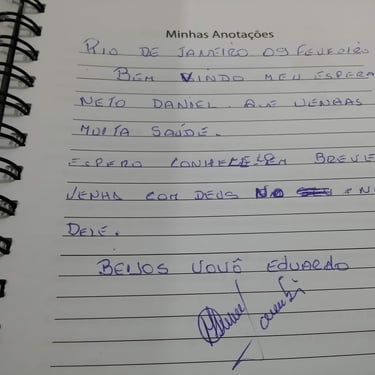 Minhas Anotações
RIO DE JANEIRO 09 FEVEREIRO
BEM VINDO MEU ESPERA
NETO DANIEL. QUE VENHAS
MUITA SAÚDE.
ESPERO CONHECELO EM BREVE
VENHA COM DEUS NO
DELE.
BEIJOS VOVÔ EDUARDO